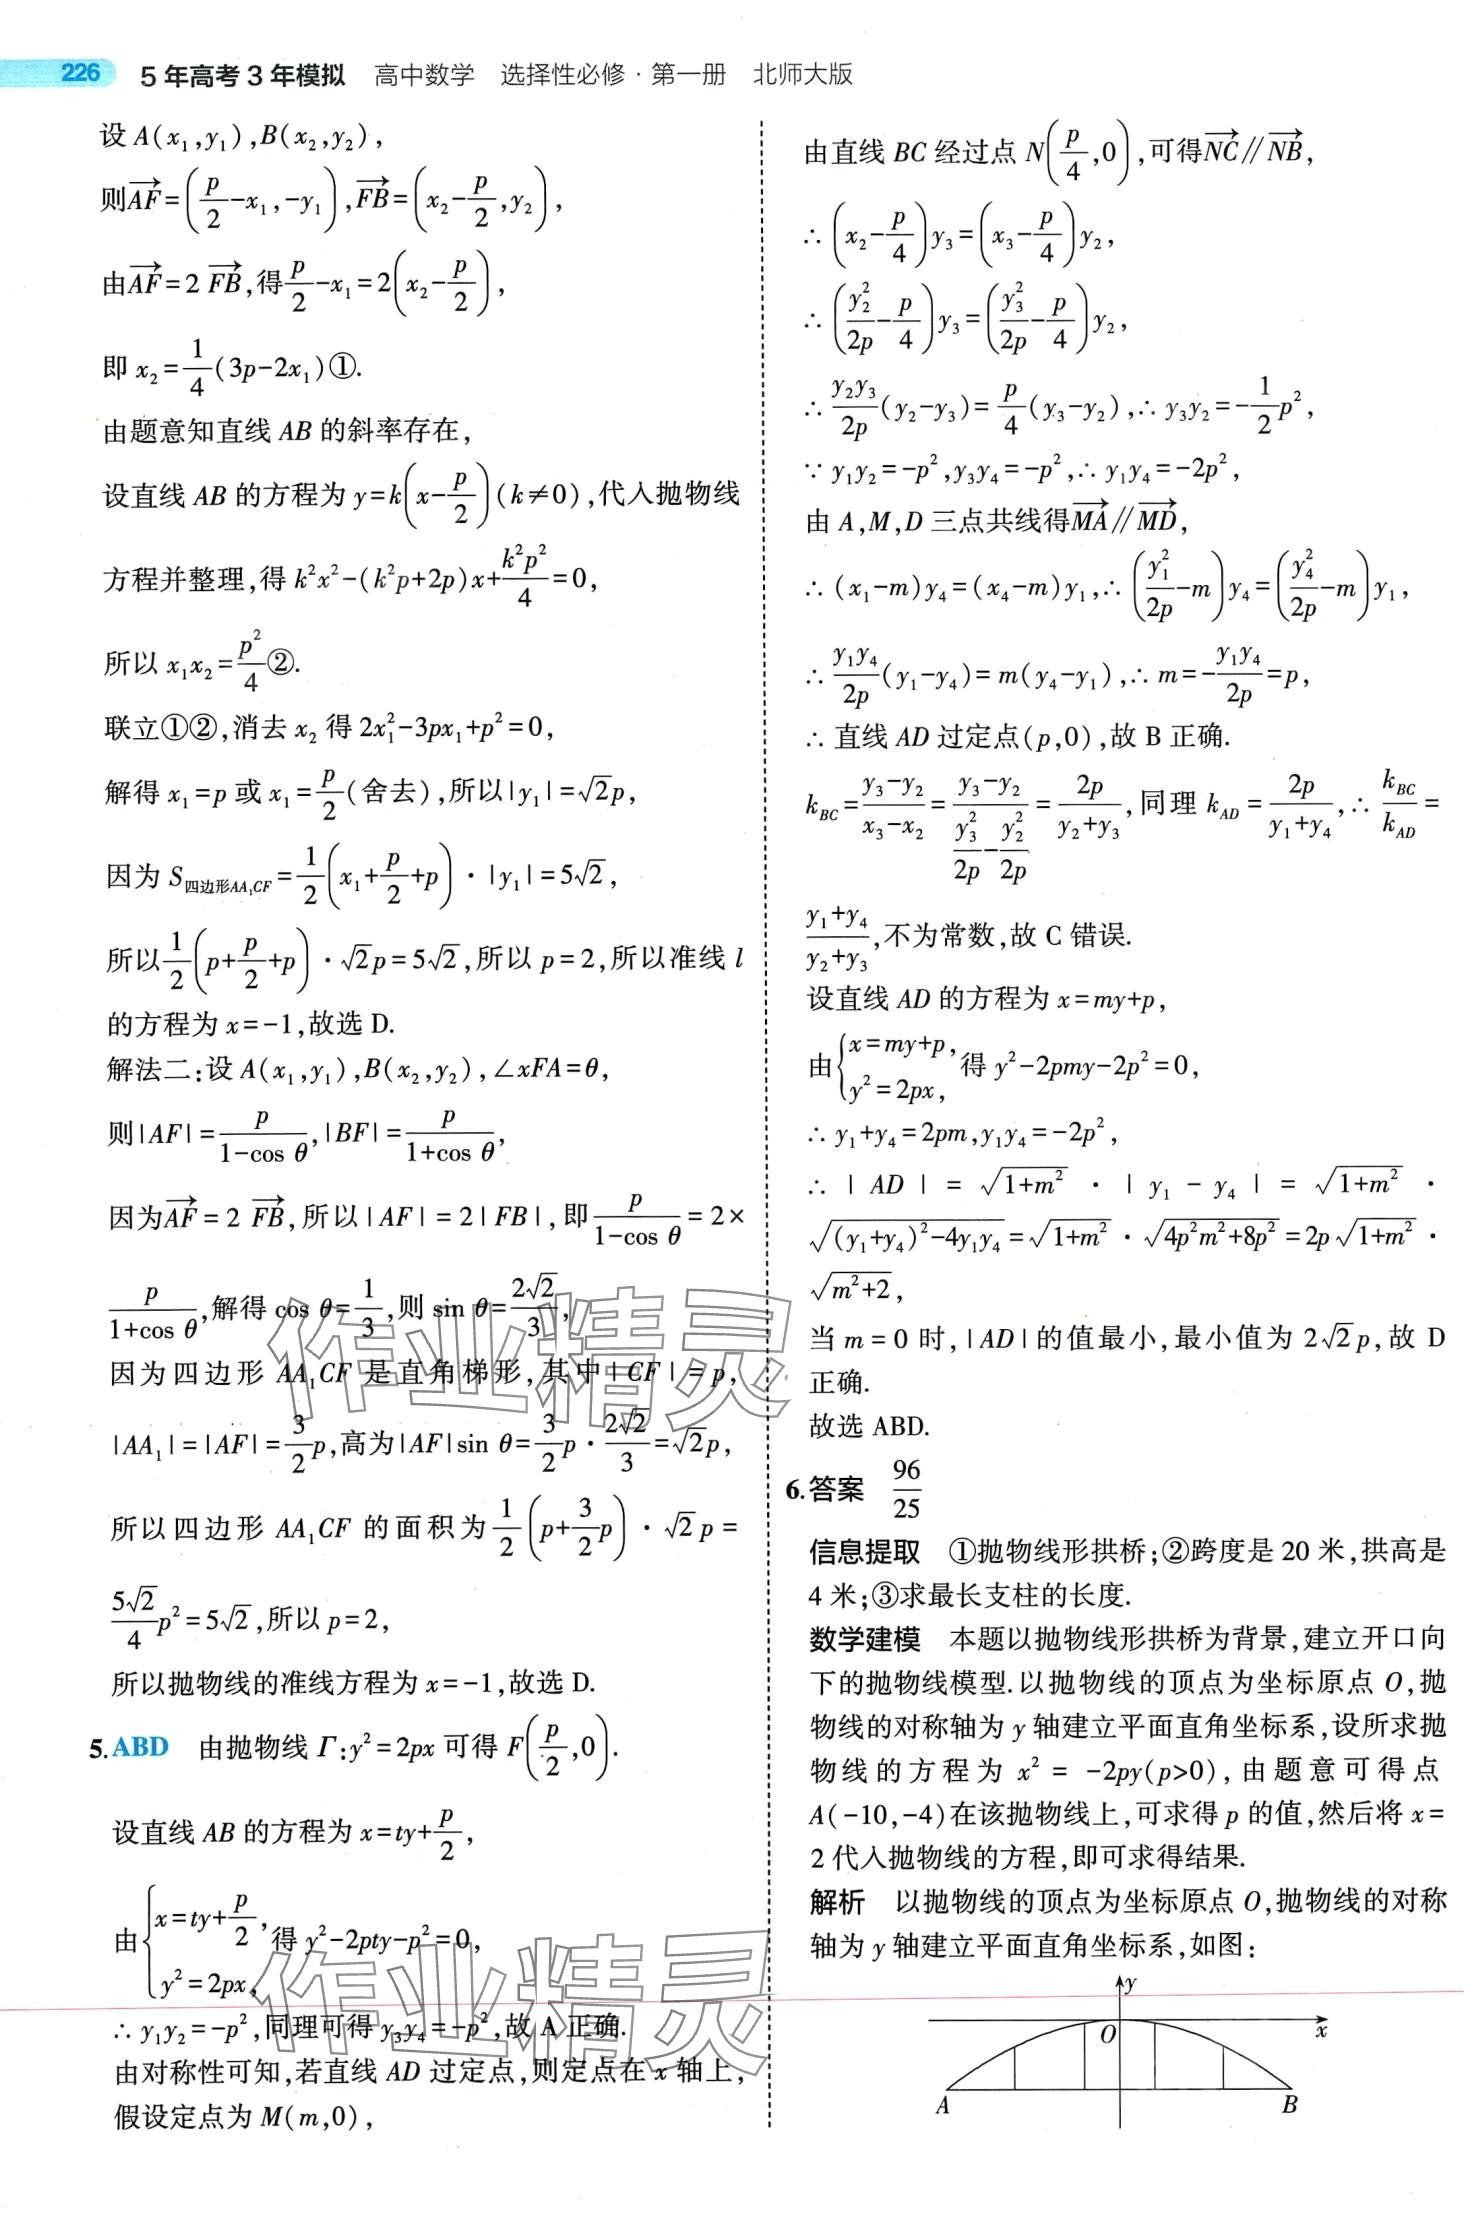 226 5年高考3年模拟 高中数学 选择性必修·第一册 北师大版
设 A(x₁,y₁),B(x₂,y₂),
则$\overrightarrow{AF}=\left(\frac{p}{2}-x_1,-y_1\right),\overrightarrow{FB}=\left(x_2-\frac{p}{2},y_2\right)$,
由$\overrightarrow{AF}=2\overrightarrow{FB}$,得$\frac{p}{2}-x_1=2\left(x_2-\frac{p}{2}\right)$,
即 $x_2=\frac{1}{4}(3p-2x_1)$①.
由题意知直线 AB 的斜率存在,
设直线 AB 的方程为 $y=k\left(x-\frac{p}{2}\right)(k≠0)$,代入抛物线
方程并整理,得 $k^2x^2-(k^2p+2p)x+\frac{k^2p^2}{4}=0$,
所以 $x_1x_2=\frac{p^2}{4}$②.
联立①②,消去 $x_2$ 得 $2x_1^2-3px_1+p^2=0$,
解得 $x_1=p$ 或 $x_1=\frac{p}{2}$(舍去),所以$|y_1|=\sqrt{2}p$,
因为 $S_{四边形AA_1CF}=\frac{1}{2}\left(x_1+\frac{p}{2}+p\right)·|y_1|=5\sqrt{2}$,
所以$\frac{1}{2}\left(p+\frac{p}{2}+p\right)·\sqrt{2}p=5\sqrt{2}$,所以 p=2,所以准线 l
的方程为 x=-1,故选 D.
解法二:设 A(x₁,y₁),B(x₂,y₂),∠xFA=θ,
则$|AF|=\frac{p}{1-\cos θ},|BF|=\frac{p}{1+\cos θ}$,
因为$\overrightarrow{AF}=2\overrightarrow{FB}$,所以|AF|=2|FB|,即$\frac{p}{1-\cos θ}=2×$
$\frac{p}{1+\cos θ}$,解得 $\cos θ=\frac{1}{3}$,则 $\sin θ=\frac{2\sqrt{2}}{3}$,
因为四边形 AA₁CF 是直角梯形,其中|CF|=p,
$|AA_1|=|AF|=\frac{3}{2}p$,高为$|AF|\sin θ=\frac{3}{2}p·\frac{2\sqrt{2}}{3}=\sqrt{2}p$,
所以四边形 AA₁CF 的面积为$\frac{1}{2}\left(p+\frac{3}{2}p\right)·\sqrt{2}p=$
$\frac{5\sqrt{2}}{4}p^2=5\sqrt{2}$,所以 p=2,
所以抛物线的准线方程为 x=-1,故选 D.
5. ABD 由抛物线 Γ:y²=2px 可得 $F\left(\frac{p}{2},0\right)$.
设直线 AB 的方程为 $x=ty+\frac{p}{2}$,
由$\begin{cases}x=ty+\frac{p}{2},\\y^2=2px,\end{cases}$得 $y^2-2pty-p^2=0$,
∴ y₁y₂=-p²,同理可得 y₃y₄=-p²,故 A 正确.
由对称性可知,若直线 AD 过定点,则定点在 x 轴上,
假设定点为 M(m,0),
由直线 BC 经过点 $N\left(\frac{p}{4},0\right)$,可得$\overrightarrow{NC}∥\overrightarrow{NB}$,
∴ $\left(x_2-\frac{p}{4}\right)y_3=\left(x_3-\frac{p}{4}\right)y_2$,
∴ $\left(\frac{y_2^2}{2p}-\frac{p}{4}\right)y_3=\left(\frac{y_3^2}{2p}-\frac{p}{4}\right)y_2$,
∴ $\frac{y_2y_3}{2p}(y_2-y_3)=\frac{p}{4}(y_3-y_2)$,∴ $y_3y_2=-\frac{1}{2}p^2$,
∵ y₁y₂=-p²,y₃y₄=-p²,∴ y₁y₄=-2p²,
由 A,M,D 三点共线得$\overrightarrow{MA}∥\overrightarrow{MD}$,
∴ $(x_1-m)y_4=(x_4-m)y_1$,∴ $\left(\frac{y_1^2}{2p}-m\right)y_4=\left(\frac{y_4^2}{2p}-m\right)y_1$,
∴ $\frac{y_1y_4}{2p}(y_1-y_4)=m(y_4-y_1)$,∴ $m=-\frac{y_1y_4}{2p}=p$,
∴ 直线 AD 过定点(p,0),故 B 正确.
$k_{BC}=\frac{y_3-y_2}{x_3-x_2}=\frac{y_3-y_2}{\frac{y_3^2}{2p}-\frac{y_2^2}{2p}}=\frac{2p}{y_2+y_3}$,同理 $k_{AD}=\frac{2p}{y_1+y_4}$,∴ $\frac{k_{BC}}{k_{AD}}=$
$\frac{y_1+y_4}{y_2+y_3}$,不为常数,故 C 错误.
设直线 AD 的方程为 x=my+p,
由$\begin{cases}x=my+p,\\y^2=2px,\end{cases}$得 $y^2-2pmy-2p^2=0$,
∴ y₁+y₄=2pm,y₁y₄=-2p²,
∴ $|AD|=\sqrt{1+m^2}·|y_1-y_4|=\sqrt{1+m^2}·$
$\sqrt{(y_1+y_4)^2-4y_1y_4}=\sqrt{1+m^2}·\sqrt{4p^2m^2+8p^2}=2p\sqrt{1+m^2}·$
$\sqrt{m^2+2}$,
当 m=0 时,|AD|的值最小,最小值为 $2\sqrt{2}p$,故 D
正确.
故选 ABD.
6. 答案 $\frac{96}{25}$
信息提取 ①抛物线形拱桥;②跨度是 20 米,拱高是
4 米;③求最长支柱的长度.
数学建模 本题以抛物线形拱桥为背景,建立开口向
下的抛物线模型.以抛物线的顶点为坐标原点 O,抛
物线的对称轴为 y 轴建立平面直角坐标系,设所求抛
物线的方程为 x²=-2py(p>0),由题意可得点
A(-10,-4)在该抛物线上,可求得 p 的值,然后将 x=
2 代入抛物线的方程,即可求得结果.
解析 以抛物线的顶点为坐标原点 O,抛物线的对称
轴为 y 轴建立平面直角坐标系,如图:
y
O
x
A
B
作业精灵
作业精灵